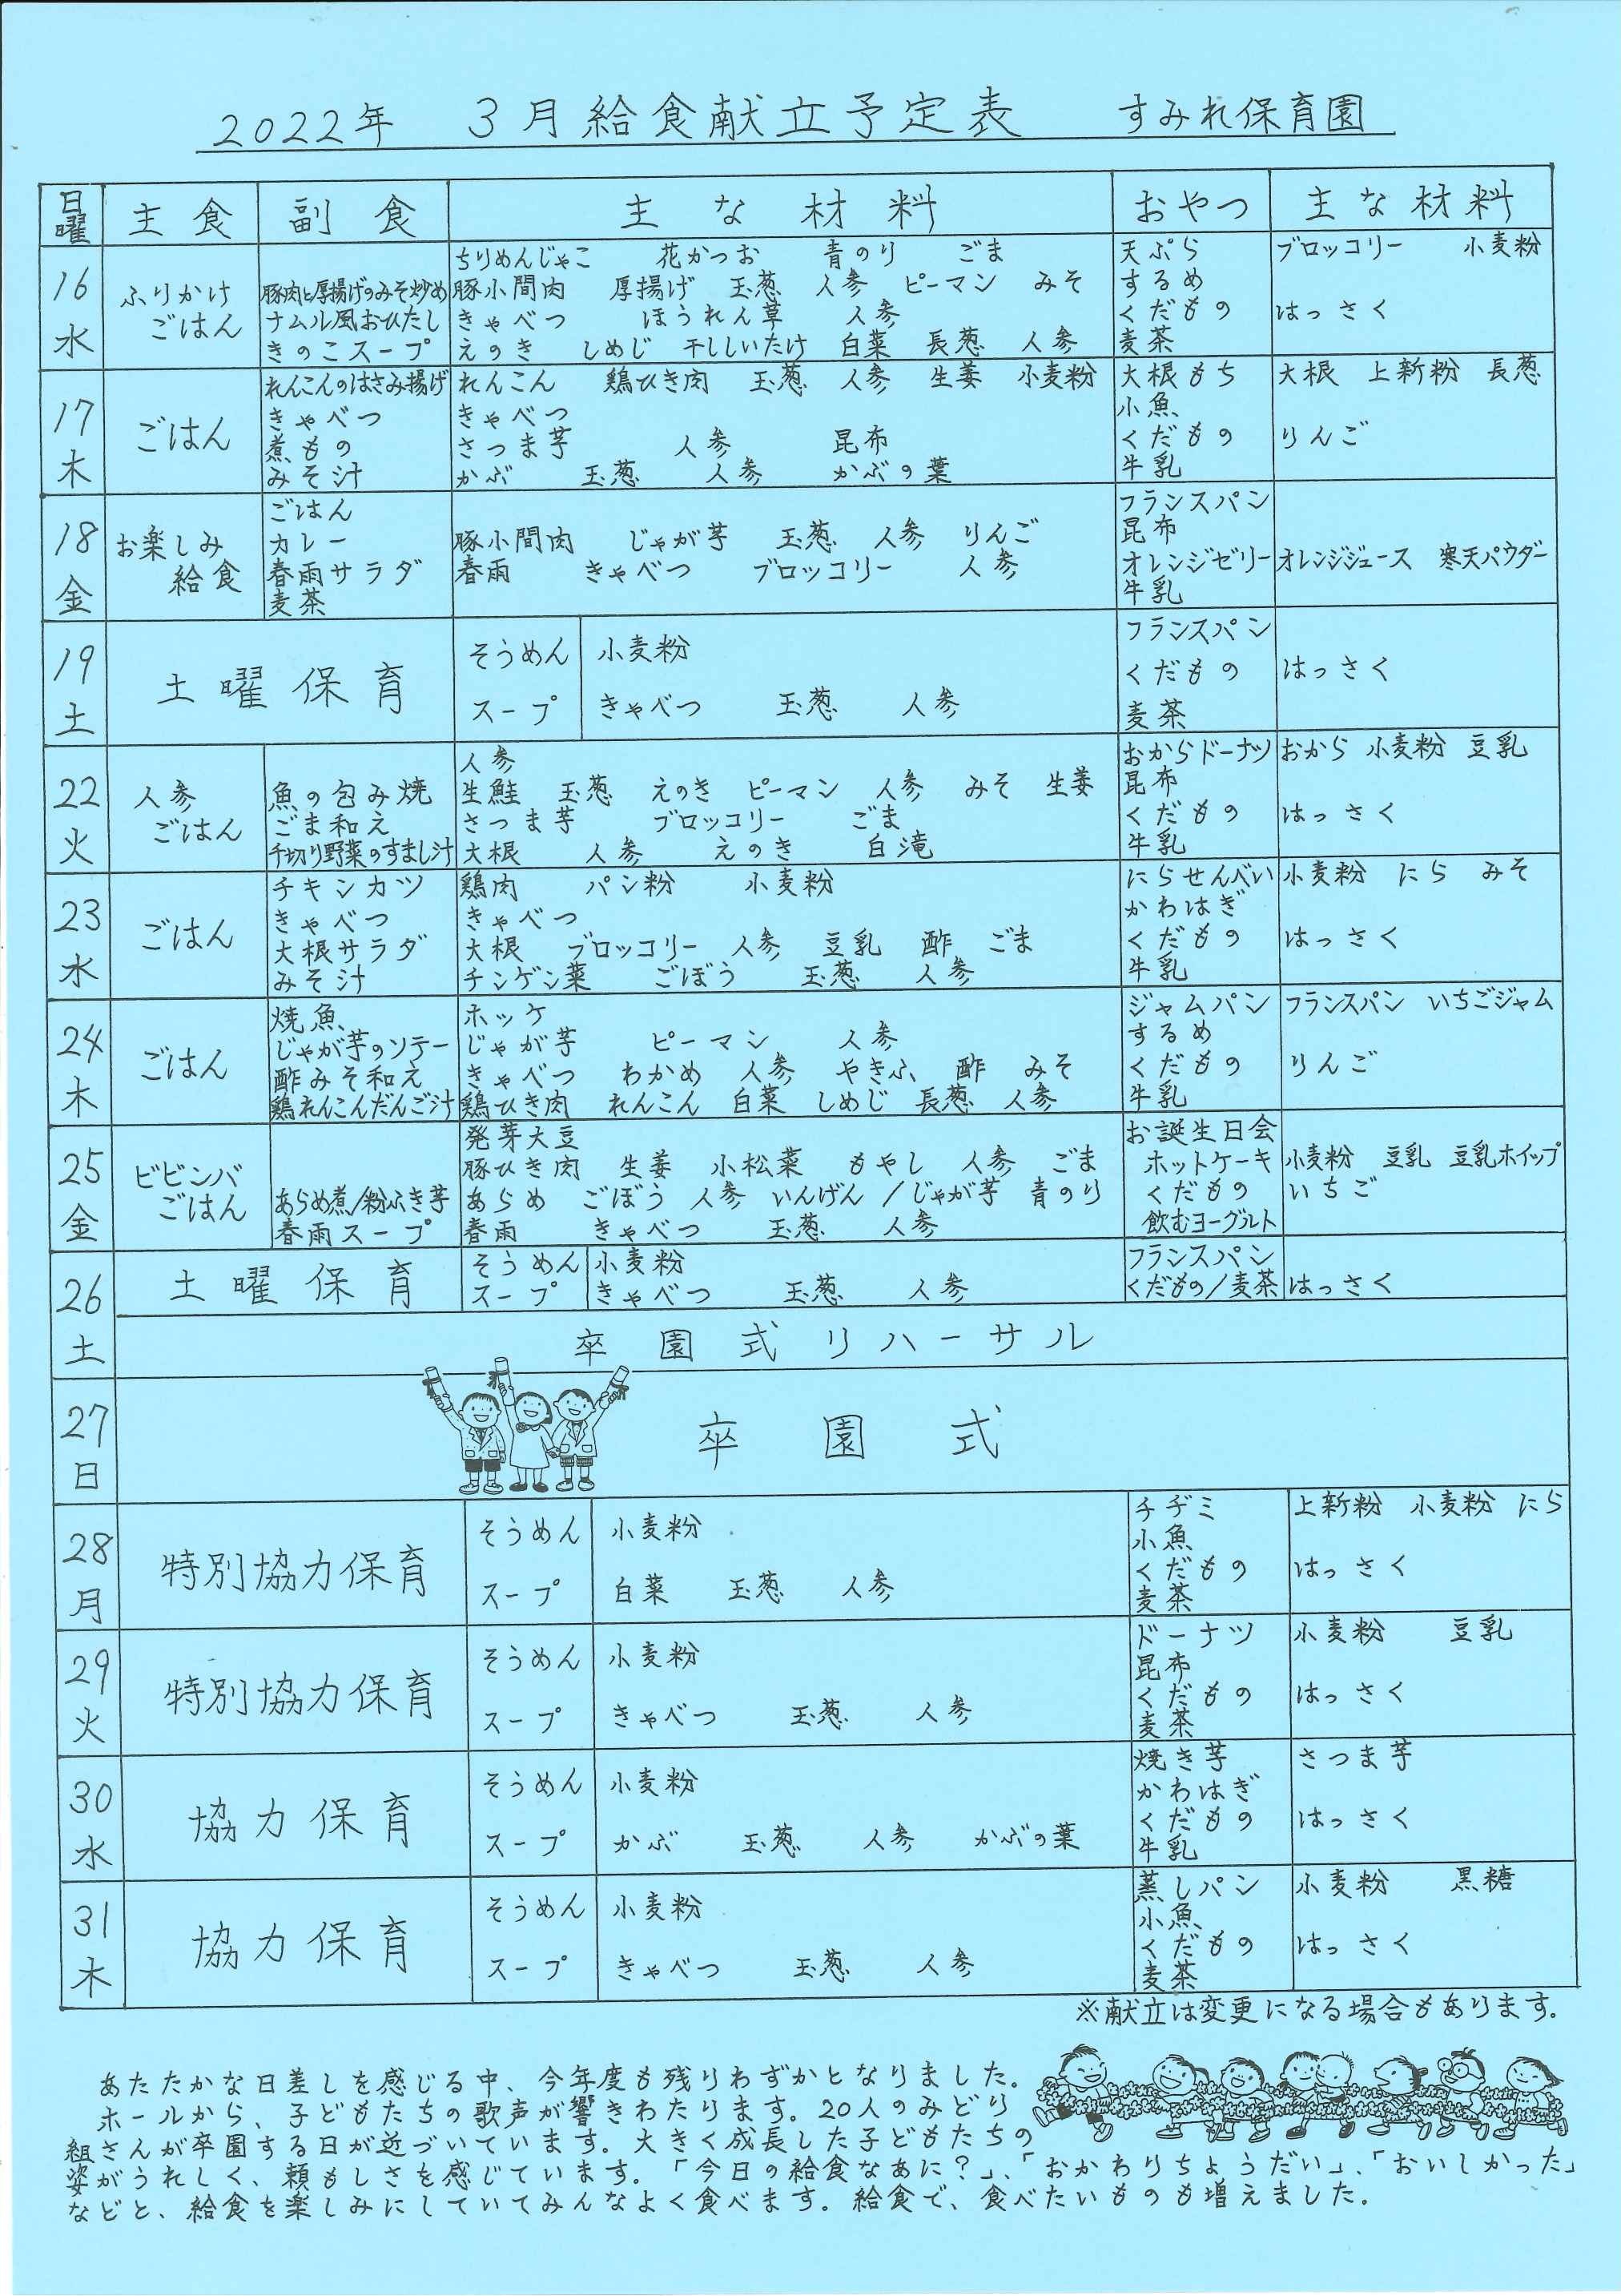 2022年 3月給食献立予定表 すみれ保育園
日曜 主食 副食 主な材料 おやつ 主な材料
16 水 ふりかけ ごはん
豚肉と厚揚げのみそ炒め
ナムル風おひたし
きのこスープ
ちりめんじゃこ 花かつお 青のり ごま
豚小間肉 厚揚げ 玉葱 人参 ピーマン みそ
きゃべつ ほうれん草 人参
えのき しめじ 干ししいたけ 白菜 長葱 人参
天ぷら ブロッコリー 小麦粉
するめ
くだもの はっさく
麦茶
17 木 ごはん
れんこんのはさみ揚げ れんこん 鶏ひき肉 玉葱 人参 生姜 小麦粉
きゃべつ きゃべつ
煮もの さつま芋 人参 昆布
みそ汁 かぶ 玉葱 人参 かぶの葉
大根もち 大根 上新粉 長葱
小魚
くだもの りんご
牛乳
18 金 お楽しみ 給食
ごはん
カレー 豚小間肉 じゃが芋 玉葱 人参 りんご
春雨サラダ 春雨 きゃべつ ブロッコリー 人参
麦茶
フランスパン
昆布
オレンジゼリー オレンジジュース 寒天パウダー
牛乳
19 土 土曜保育
そうめん 小麦粉
スープ きゃべつ 玉葱 人参
フランスパン
くだもの はっさく
麦茶
22 火 人参 ごはん
人参
魚の包み焼 生鮭 玉葱 えのき ピーマン 人参 みそ 生姜
ごま和え さつま芋 ブロッコリー ごま
千切り野菜のすまし汁 大根 人参 えのき 白滝
おからドーナツ おから 小麦粉 豆乳
昆布
くだもの はっさく
牛乳
23 水 ごはん
チキンカツ 鶏肉 パン粉 小麦粉
きゃべつ きゃべつ
大根サラダ 大根 ブロッコリー 人参 豆乳 酢 ごま
みそ汁 チンゲン菜 ごぼう 玉葱 人参
にらせんべい 小麦粉 にら みそ
かわはぎ
くだもの はっさく
牛乳
24 木 ごはん
焼魚 ホッケ
じゃが芋のソテー じゃが芋 ピーマン 人参
酢みそ和え きゃべつ わかめ 人参 やきふ 酢 みそ
鶏れんこんだんご汁 鶏ひき肉 れんこん 白菜 しめじ 長葱 人参
ジャムパン フランスパン いちごジャム
するめ
くだもの りんご
牛乳
25 金 ビビンバ ごはん
発芽大豆
豚ひき肉 生姜 小松菜 もやし 人参 ごま
あらめ煮/粉ふき芋 あらめ ごぼう 人参 いんげん/じゃが芋 青のり
春雨スープ 春雨 きゃべつ 玉葱 人参
お誕生日会
ホットケーキ 小麦粉 豆乳 豆乳ホイップ
くだもの いちご
飲むヨーグルト
26 土 土曜保育
そうめん 小麦粉
スープ きゃべつ 玉葱 人参
フランスパン
くだもの/麦茶 はっさく
卒園式リハーサル
27 日 卒園式
28 月 特別協力保育
そうめん 小麦粉
スープ 白菜 玉葱 人参
チヂミ 上新粉 小麦粉 にら
小魚
くだもの はっさく
麦茶
29 火 特別協力保育
そうめん 小麦粉
スープ きゃべつ 玉葱 人参
ドーナツ 小麦粉 豆乳
昆布
くだもの はっさく
麦茶
30 水 協力保育
そうめん 小麦粉
スープ かぶ 玉葱 人参 かぶの葉
焼き芋 さつま芋
かわはぎ
くだもの はっさく
牛乳
31 木 協力保育
そうめん 小麦粉
スープ きゃべつ 玉葱 人参
蒸しパン 小麦粉 黒糖
小魚
くだもの はっさく
麦茶
※献立は変更になる場合もあります。
あたたかな日差しを感じる中、今年度も残りわずかとなりました。
ホールから、子どもたちの歌声が響きわたります。20人のみどり
組さんが卒園する日が近づいています。大きく成長した子どもたちの
姿がうれしく、頼もしさを感じています。「今日の給食なあに?」、「おかわりちょうだい」、「おいしかった」
などと、給食を楽しみにしていてみんなよく食べます。給食で、食べたいものも増えました。